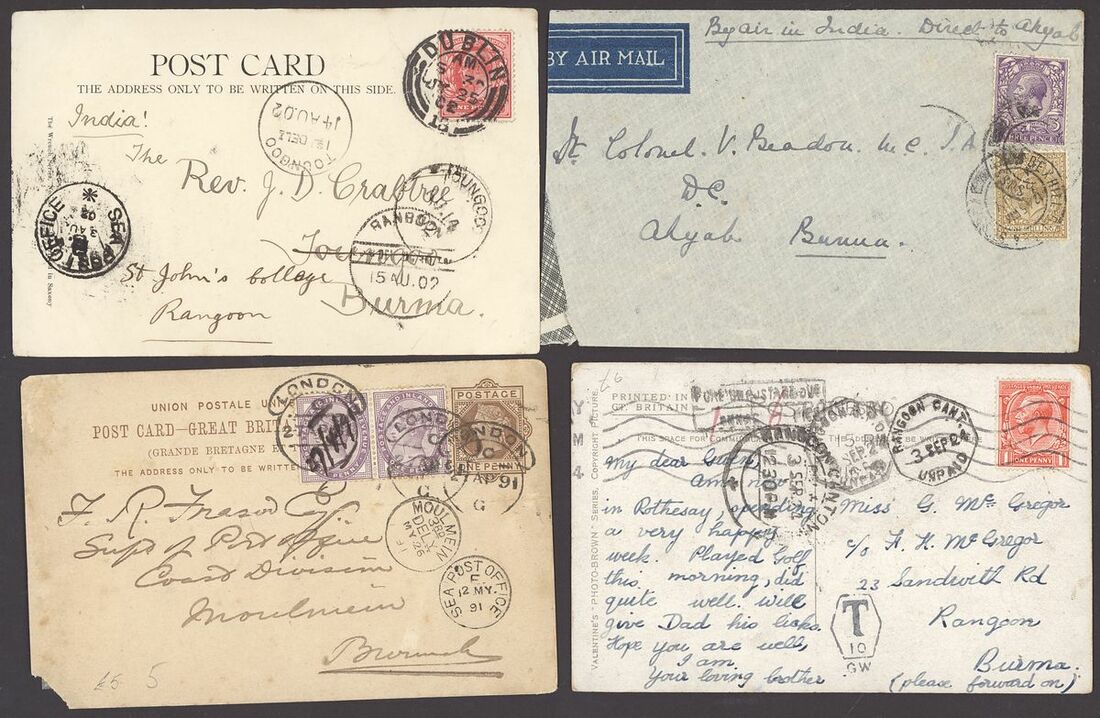 POST CARD
THE ADDRESS ONLY TO BE WRITTEN ON THIS SIDE.
India!
The
Rev. J. D. Crabtree
St John's College
Rangoon
Burma.
DUBLIN
AM
JY 25
02
TOUNGOO
1st DELI
14 AU.02
TOUNGOO
RANGOON
15 AU.02
SEA POST OFFICE
BY AIR MAIL
By air in India Direct to Akyab
Lt Colonel. V. Beadon. M.C. I.A
D.C.
Akyab Burma.
UNION POSTALE
POST CARD—GREAT
(GRANDE BRETAGNE
THE ADDRESS ONLY TO BE WRITTEN
POSTAGE
LONDON
LONDON
AP 91
G
G
F. R. Fraser Esq.
Supt of Post Office
Coast Division
Moulmein
Burmah
MOULMEIN
DEL.
MY 26
SEA POST OFFICE
E
12 MY.
91
£5 5
PRINTED IN
GT. BRITAIN
THIS SPACE FOR
VALENTINE'S "PHOTO-BROWN" SERIES. COPYRIGHT PICTURE.
ONE PENNY
RANGOON CANT.
3 SEP 24
UNPAID
RANGOON CANTON.
3 SEP. 24
12.30PM
My dear
in Rothesay, spending
a very happy
week. Played Golf
this morning, did
quite well. will
give Dad his licks.
Hope you are well,
I am
Your loving brother
Miss G. McGregor
c/o A. K. McGregor
23 Sandwith Rd
Rangoon
Burma.
(please forward on)
T
10
GW